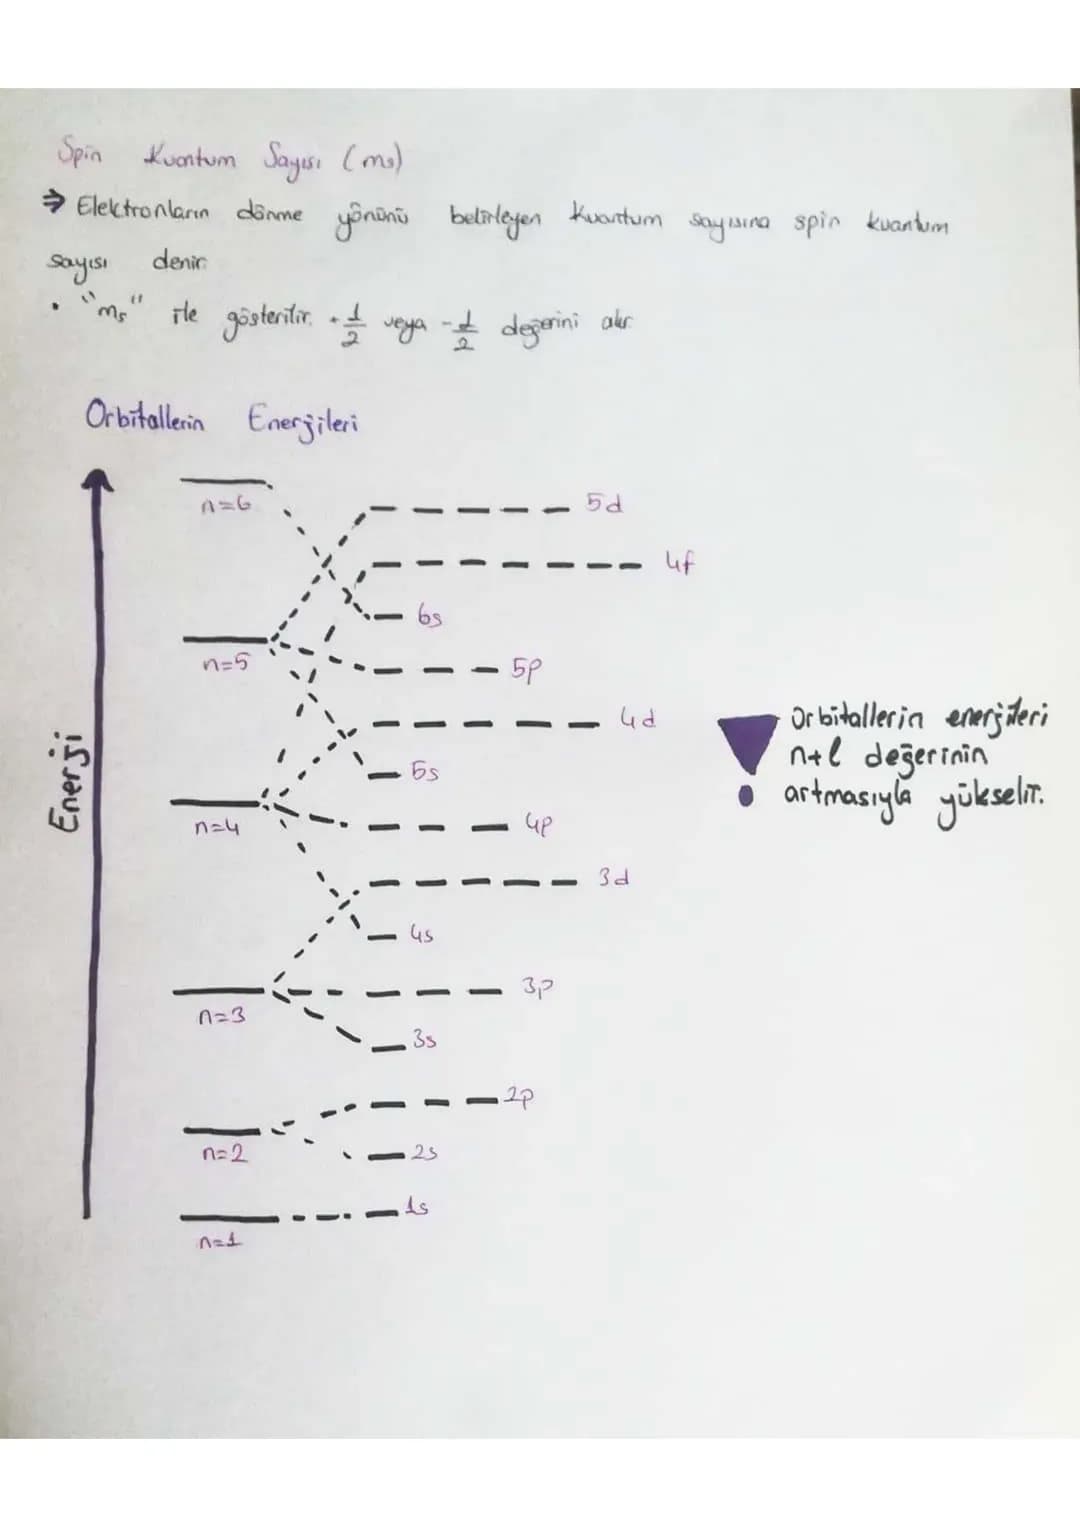 Spin Kuantum Sayısı (ms)
⇒ Elektronların dönme yönünü belirleyen kuantum sayısına spin kuantum
sayısı denir.
• "ms" ile gösterilir. +1/2 veya -1/2 değerini alır.
Orbitallerin Enerjileri
Enerji
n=6
5d
4f
6s
n=5
5p
4d
5s
n=4
4p
3d
4s
n=3
3p
3s
2p
n=2
2s
1s
n=1
Orbitallerin enerjileri
n+l değerinin
artmasıyla yükselir.